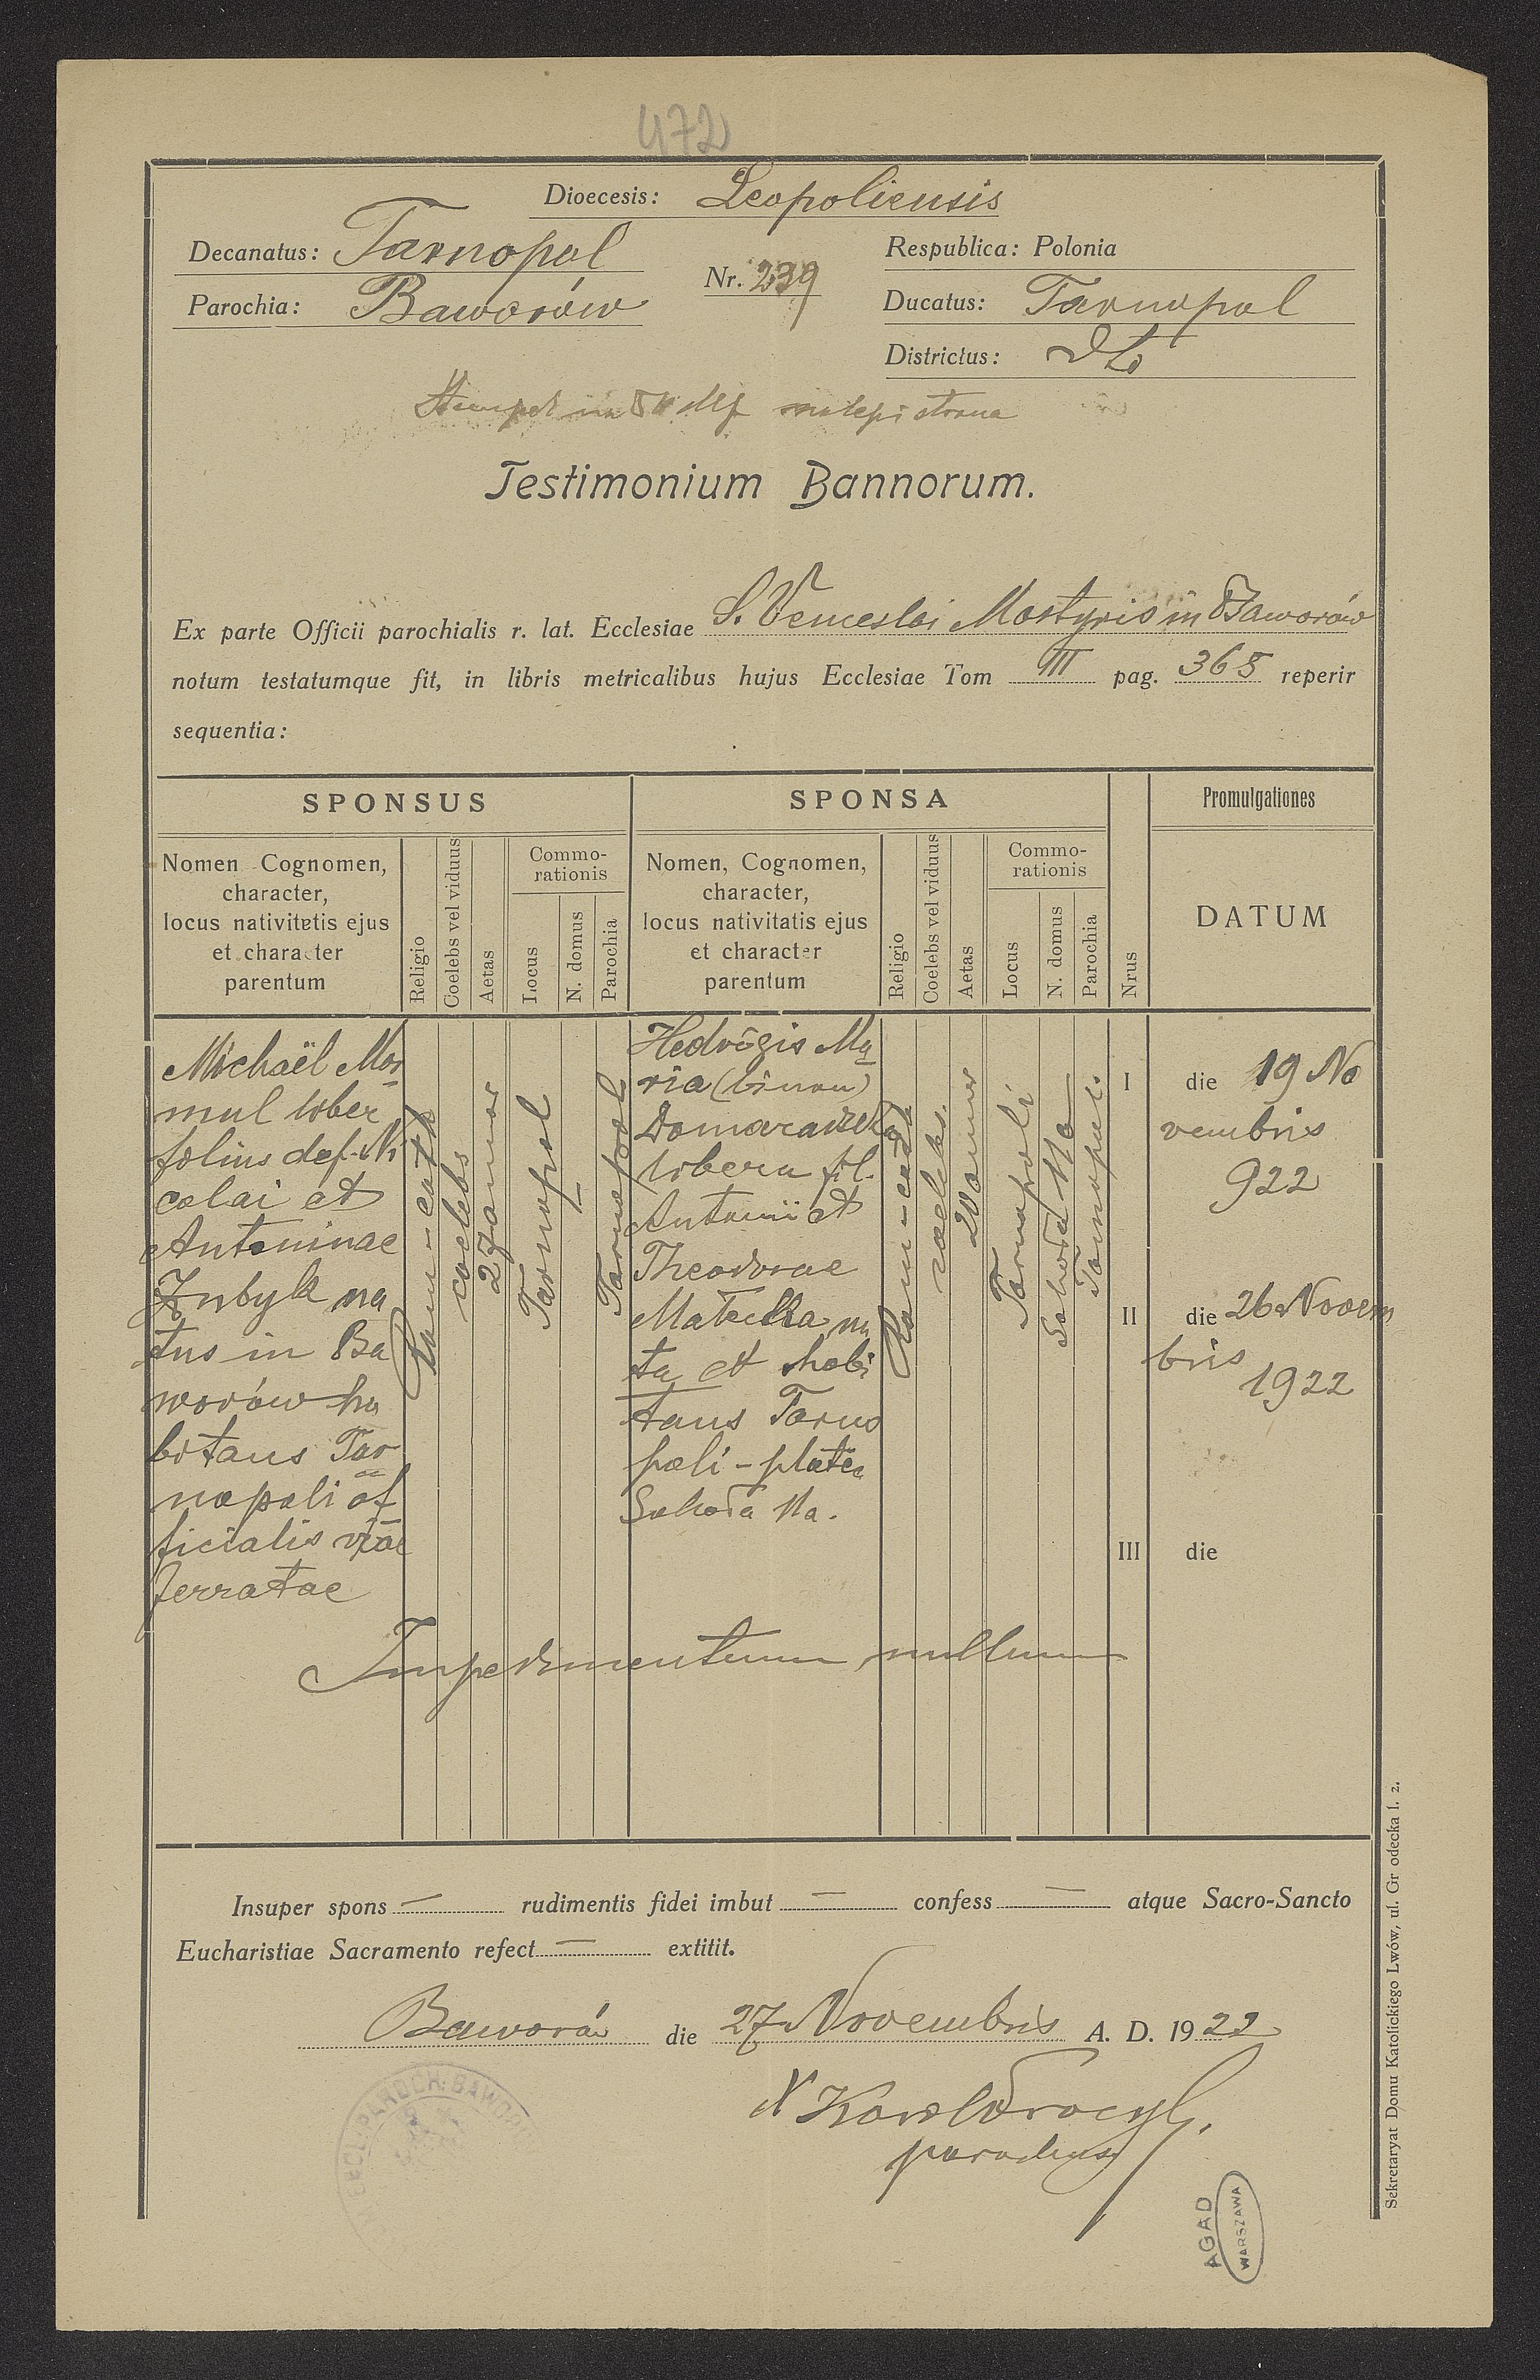 472
Dioecesis: Leopoliensis
Decanatus: Tarnopol
Parochia: Baworów
Nr. 239
Respublica: Polonia
Ducatus: Tarnopol
Districtus: dto
Stempel na odstrona
Testimonium Bannorum.
Ex parte Officii parochialis r. lat. Ecclesiae S. Venceslai Martyris in Baworów
notum testatumque fit, in libris metricalibus hujus Ecclesiae Tom III pag. 368 reperir
sequentia:
SPONSUS
SPONSA
Promulgationes
Nomen Cognomen,
character,
locus nativitatis ejus
et character
parentum
Religio
Coelebs vel viduus
Aetas
Commo-
rationis
Locus
N. domus
Parochia
Nomen, Cognomen,
character,
locus nativitatis ejus
et character
parentum
Religio
Coelebs vel viduus
Aetas
Commo-
rationis
Locus
N. domus
Parochia
Nrus
DATUM
Michaël Mar
mul liber
folius def. Ni
colai et
Antoninae
Zubyk na
tus in Ba
worów ha
bitans Tar
nopoli of
ficialis viae
ferratae
Rom-cath
coelebs
27 annor
Tarnopol
-
Tarnopol
Hedvigis Ma
ria (binom)
libera fil.
Antonii et
Theodorae
na
ta et habi
tans Tarno
poli - platea
11a.
Rom-cath
coelebs.
20 annor
Tarnopoli
11a
Tarnopol.
I die 19 No
vembris
922
II die 26 Novem
bris
1922
III die
Impedimentum nullum
Insuper spons — rudimentis fidei imbut — confess — atque Sacro-Sancto
Eucharistiae Sacramento refect — extitit.
Baworów die 27 Novembris A. D. 1922
X
parochus
ECCL. PAROCH. BAWORÓW
AGAD
WARSZAWA
Sekretaryat Domu Katolickiego Lwów, ul. Gr odecka l. 2.